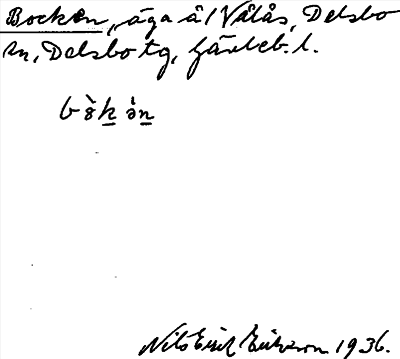 Bocken, äga å / Välås, Delsbo
sn, Delsbo tg, Gävleb. l.
Nils Erik Eriksson 1936.